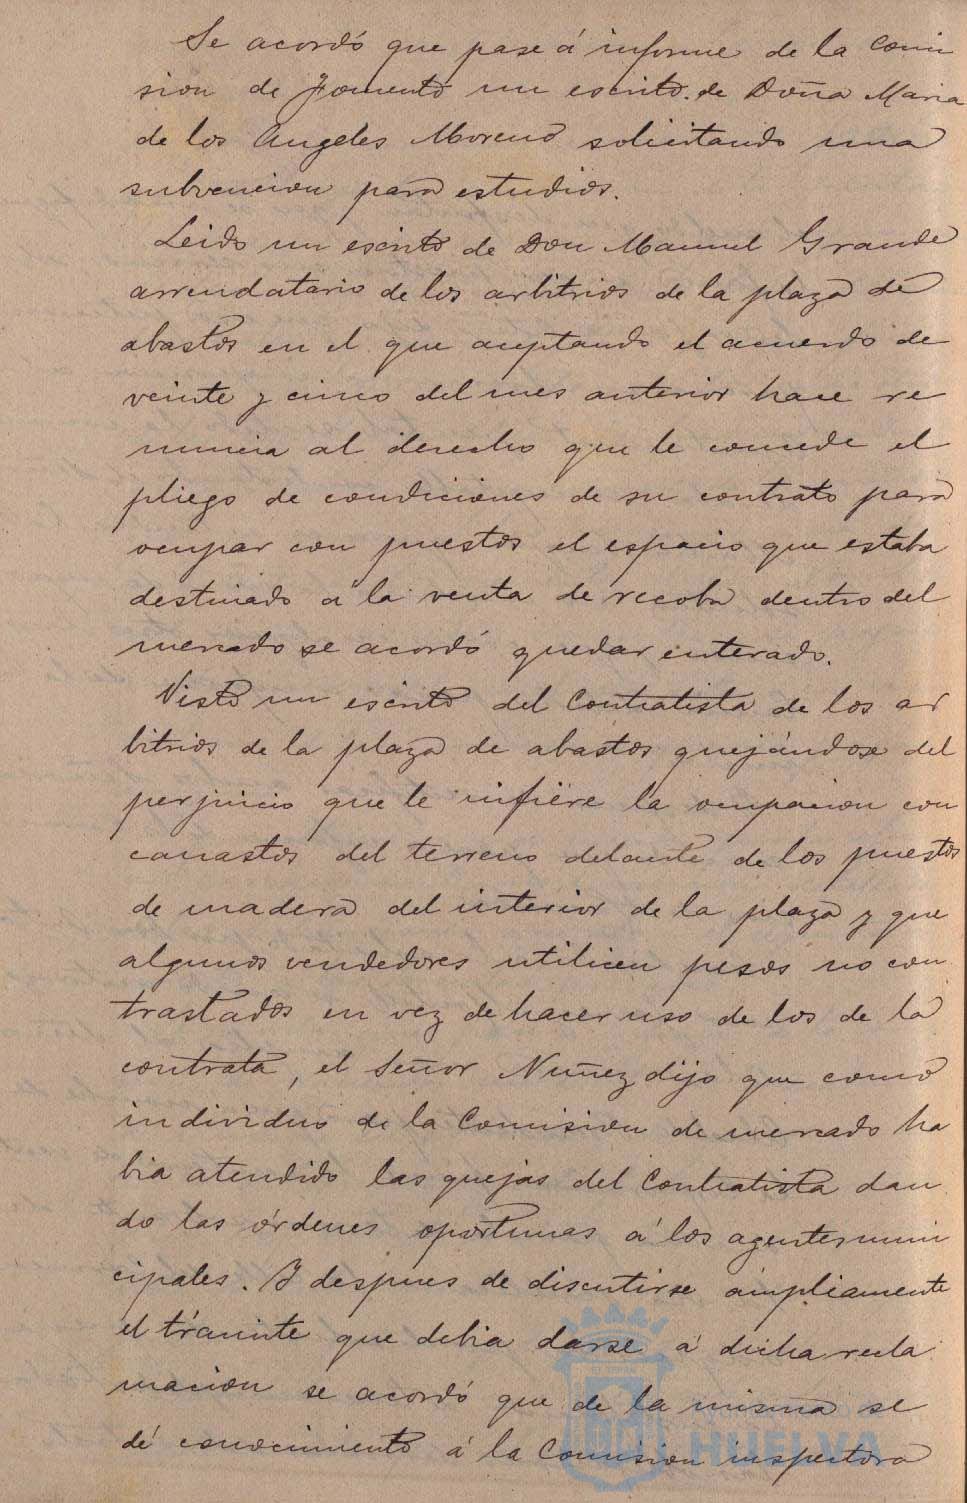 Se acordó que pase á informe de la Comi
sion de Fomento un escrito de Doña Maria
de los Angeles Moreno solicitando una
subvencion para estudios.
Leido un escrito de Don Manuel Grande
arrendatario de los arbitrios de la plaza de
abastos en el que aceptando el acuerdo de
veinte y cinco del mes anterior hace re
nuncia al derecho que le concede el
pliego de condiciones de su contrato para
ocupar con puestos el espacio que estaba
destinado á la venta de recoba dentro del
mercado se acordó quedar enterado.
Visto un escrito del Contratista de los ar
bitrios de la plaza de abastos quejándose del
perjuicio que le infiere la ocupacion con
canastos del terreno delante de los puestos
de madera del interior de la plaza y que
algunos vendedores utilicen pesos no con
trastados en vez de hacer uso de los de la
contrata, el Señor Nuñez dijo que como
individuo de la Comision de mercado ha
bia atendido las quejas del Contratista dan
do las órdenes oportunas á los agentes muni
cipales. Y despues de discutirse ámpliamente
el trámite que debia darse á dicha recla
macion se acordó que de la misma se
dé conocimiento á la Comision inspectora
HUELVA